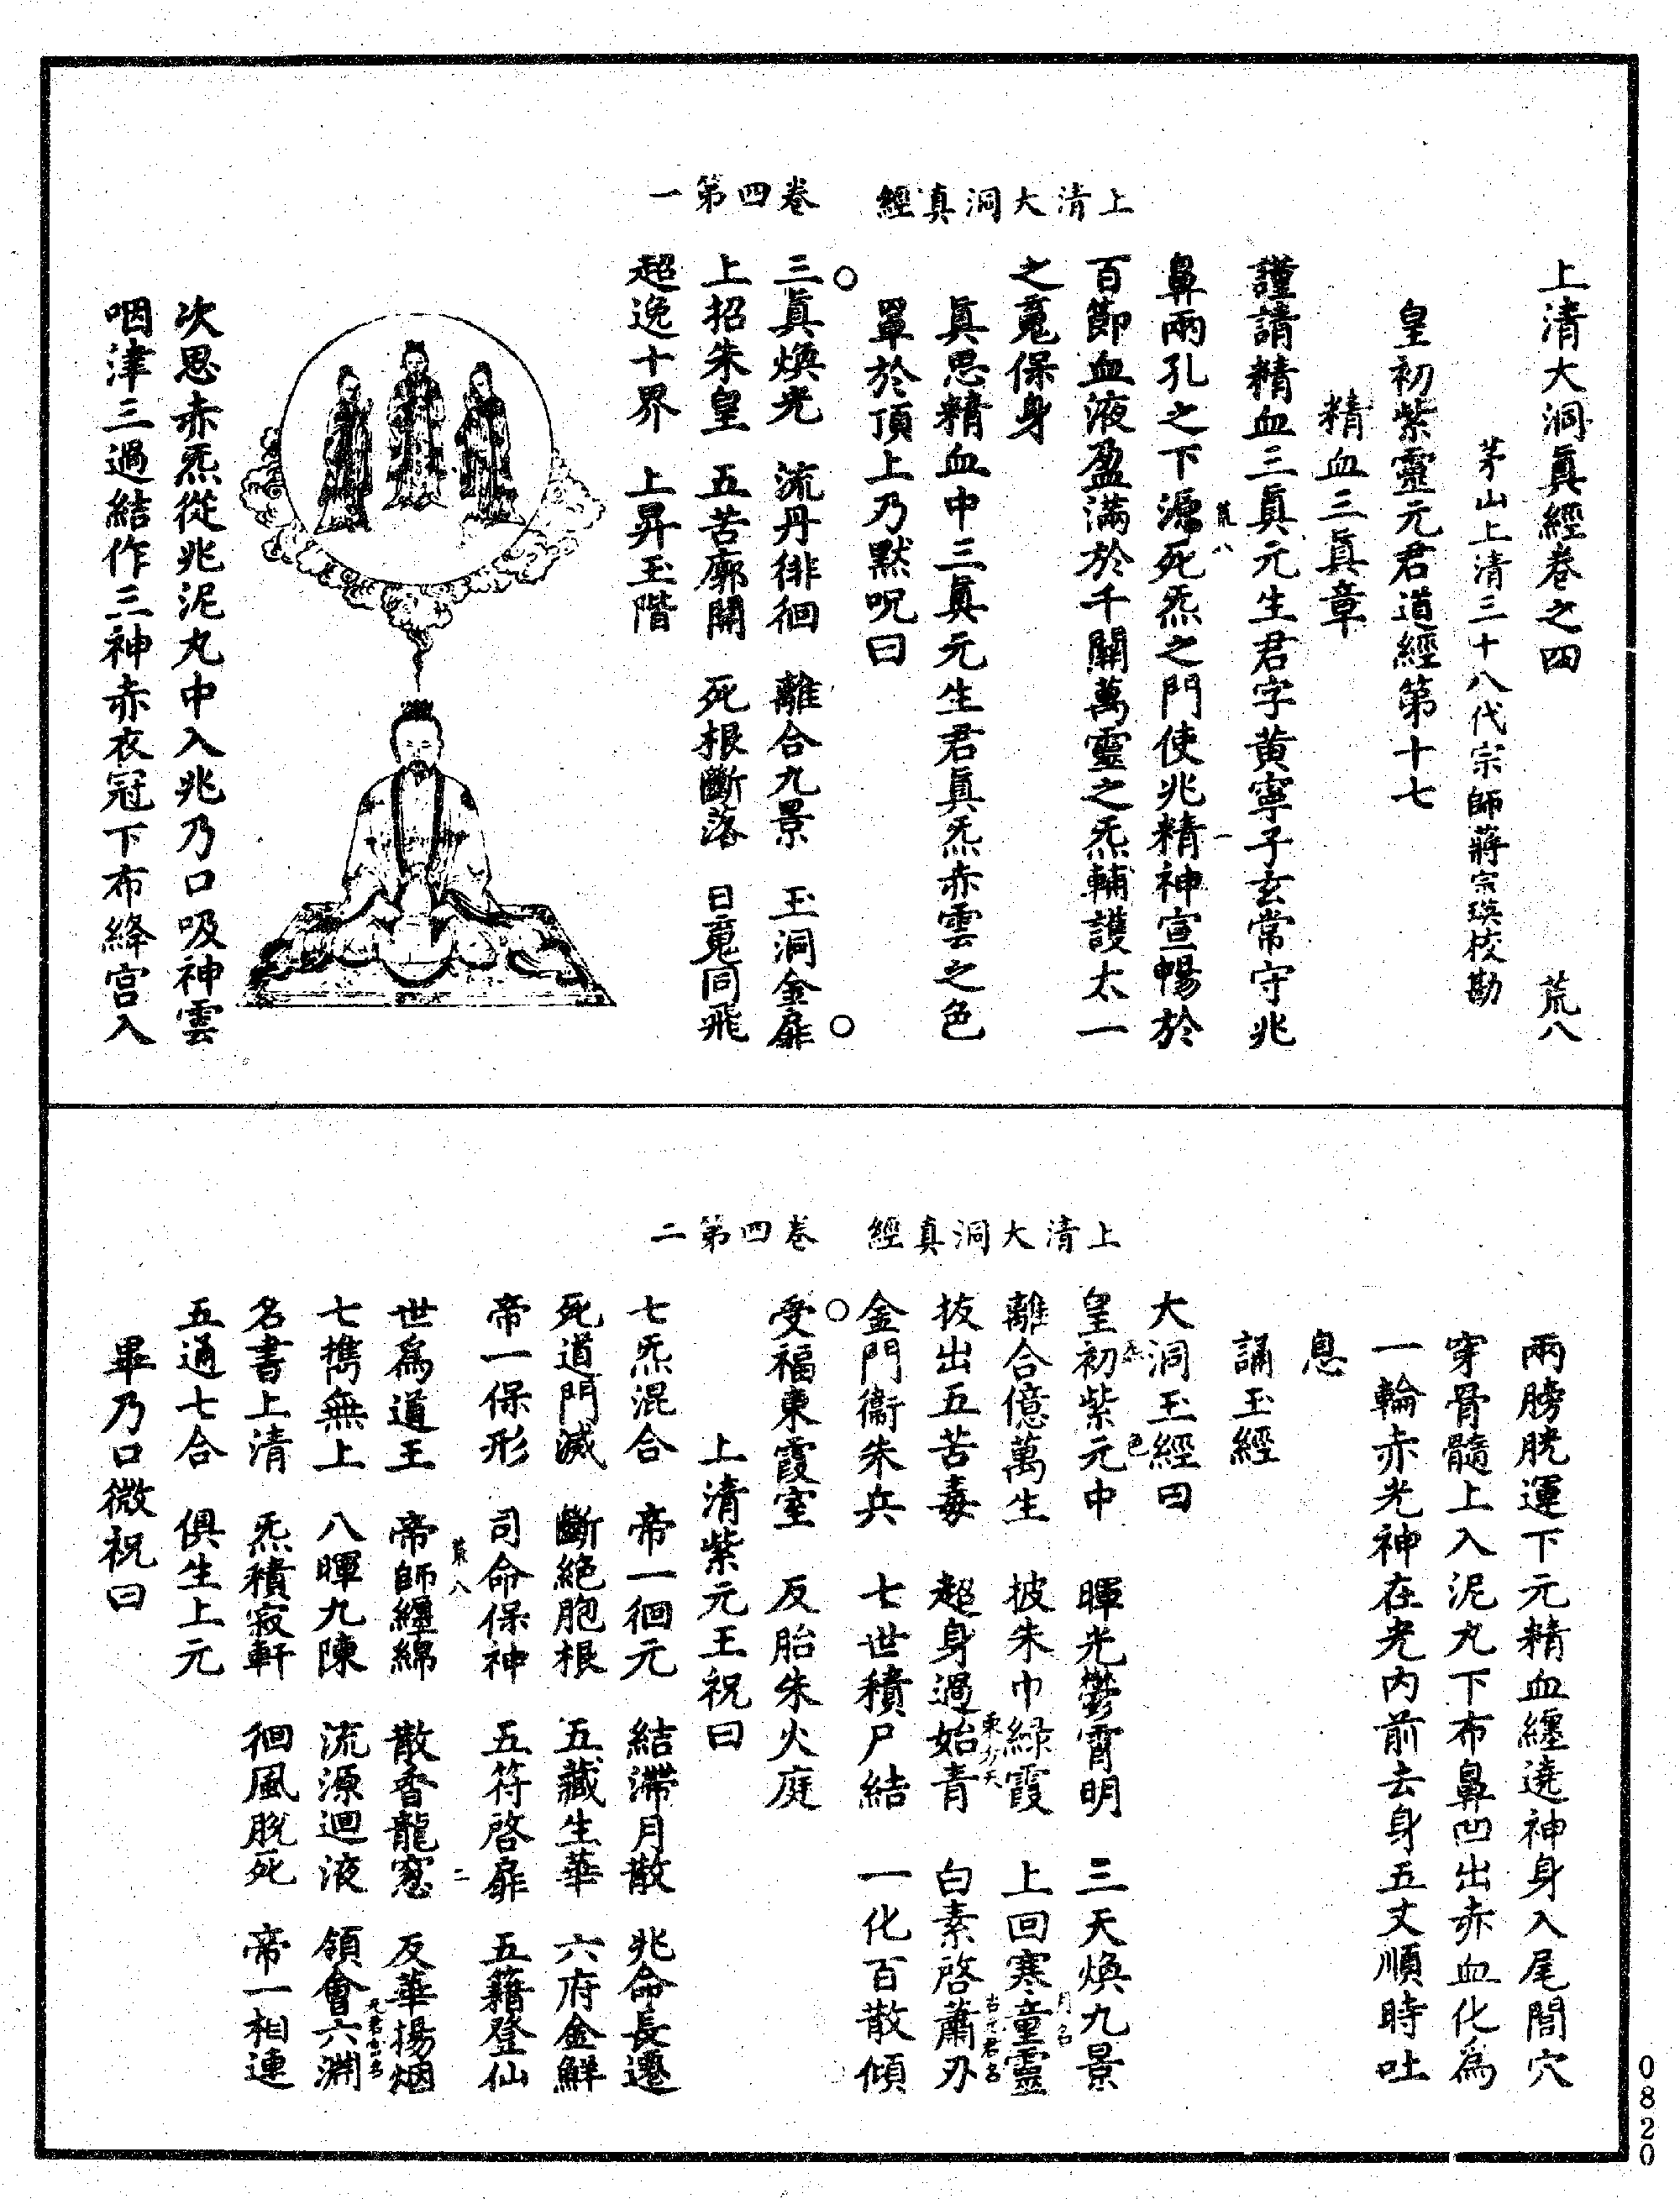 上清大洞真經　卷四第一
上清大洞眞經卷之四　荒八
茅山上清三十八代宗師蔣宗瑛校勘
皇初紫靈元君道經第十七
精血三眞章
謹請精血三眞元生君字黄寧子玄常守兆
荒八　一
鼻兩孔之下源死炁之門使兆精神宣暢於
百節血液盈滿於千關萬靈之炁輔護太一
之䰟保身
眞思精血中三眞元生君眞炁赤雲之色
罩於頂上乃默呪曰
○　○
三眞煥光　流丹徘徊　離合九景　玉洞金扉
上招朱皇　五苦廓開　死根斷落　日䰟同飛
超逸十界　上昇玉階
次思赤炁從兆泥丸中入兆乃口吸神雲
咽津三過結作三神赤衣冠下布絳宫入
上清大洞真經　卷四第二
兩膀胱運下元精血纏遶神身入尾閭穴
穿骨髓上入泥丸下布鼻凹出赤血化爲
一輪赤光神在光内前去身五丈順時吐
息
誦玉經
大洞玉經曰
皇初紫元中　暉光鬱霄明　三天煥九景
離合億萬生　披朱巾緑霞　上回寒童靈月名
拔出五苦毒　超身過始青東方天　白素啓蕭刃
金門衞朱兵　七世積尸結　一化百散傾
○
受福東霞室　反胎朱火庭
上清紫元王祝曰
七炁混合　帝一徊元　結滯月散　兆命長遷
死道門滅　斷絶胞根　五藏生華　六府金鮮
帝一保形　司命保神　五符啓扉　五籍登仙
荒八　二
世爲道王　帝師纏綿　散香龍窓　反華揚烟
七擕無上　八暉九陳　流源迴液　領會六淵
名書上清　炁積寂軒　徊風脱死　帝一相連
五通七合　俱生上元
畢乃口微祝曰
0820